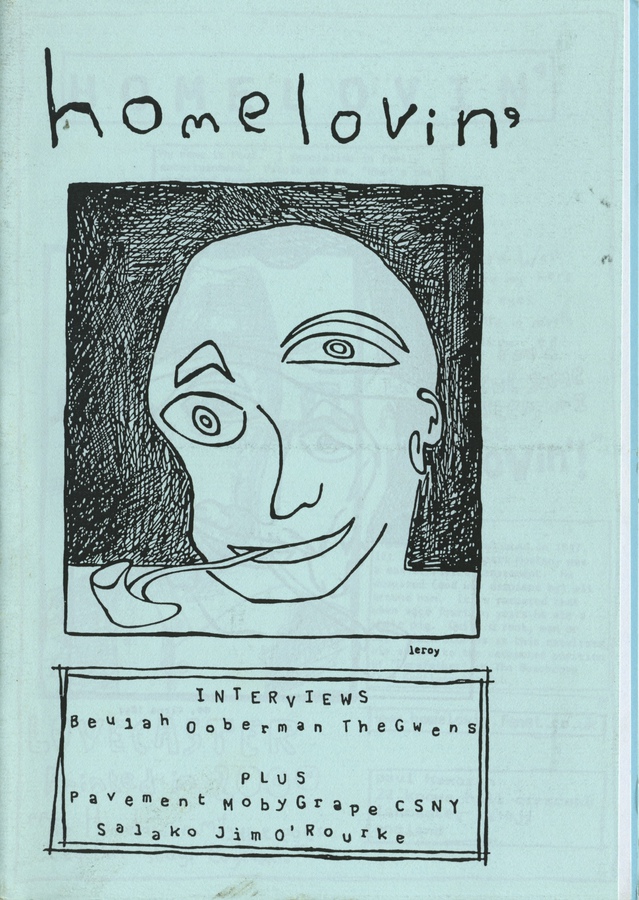 homelovin'
leroy
INTERVIEWS
Beulah Ooberman TheGwens
PLUS
Pavement MobyGrape CSNY
Salako Jim O'Rourke